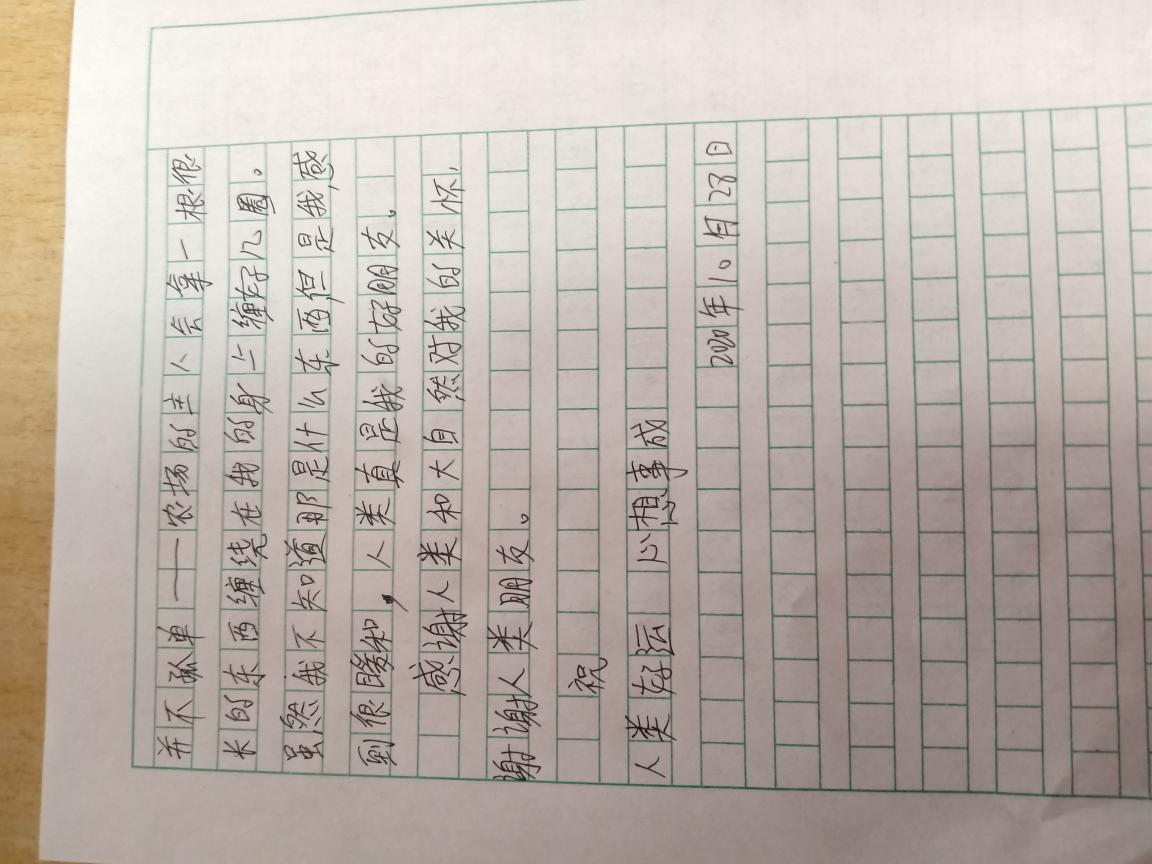 并不孤单——农场的主人会拿一根很
长的东西缠绕在我的身上缠好几圈。
虽然我不知道那是什么东西但是我感
到很暖和，人类真是我的好朋友。
感谢人类和大自然对我的关怀，
谢谢人类朋友。
祝
人类好运 心想事成
2020年10月28日